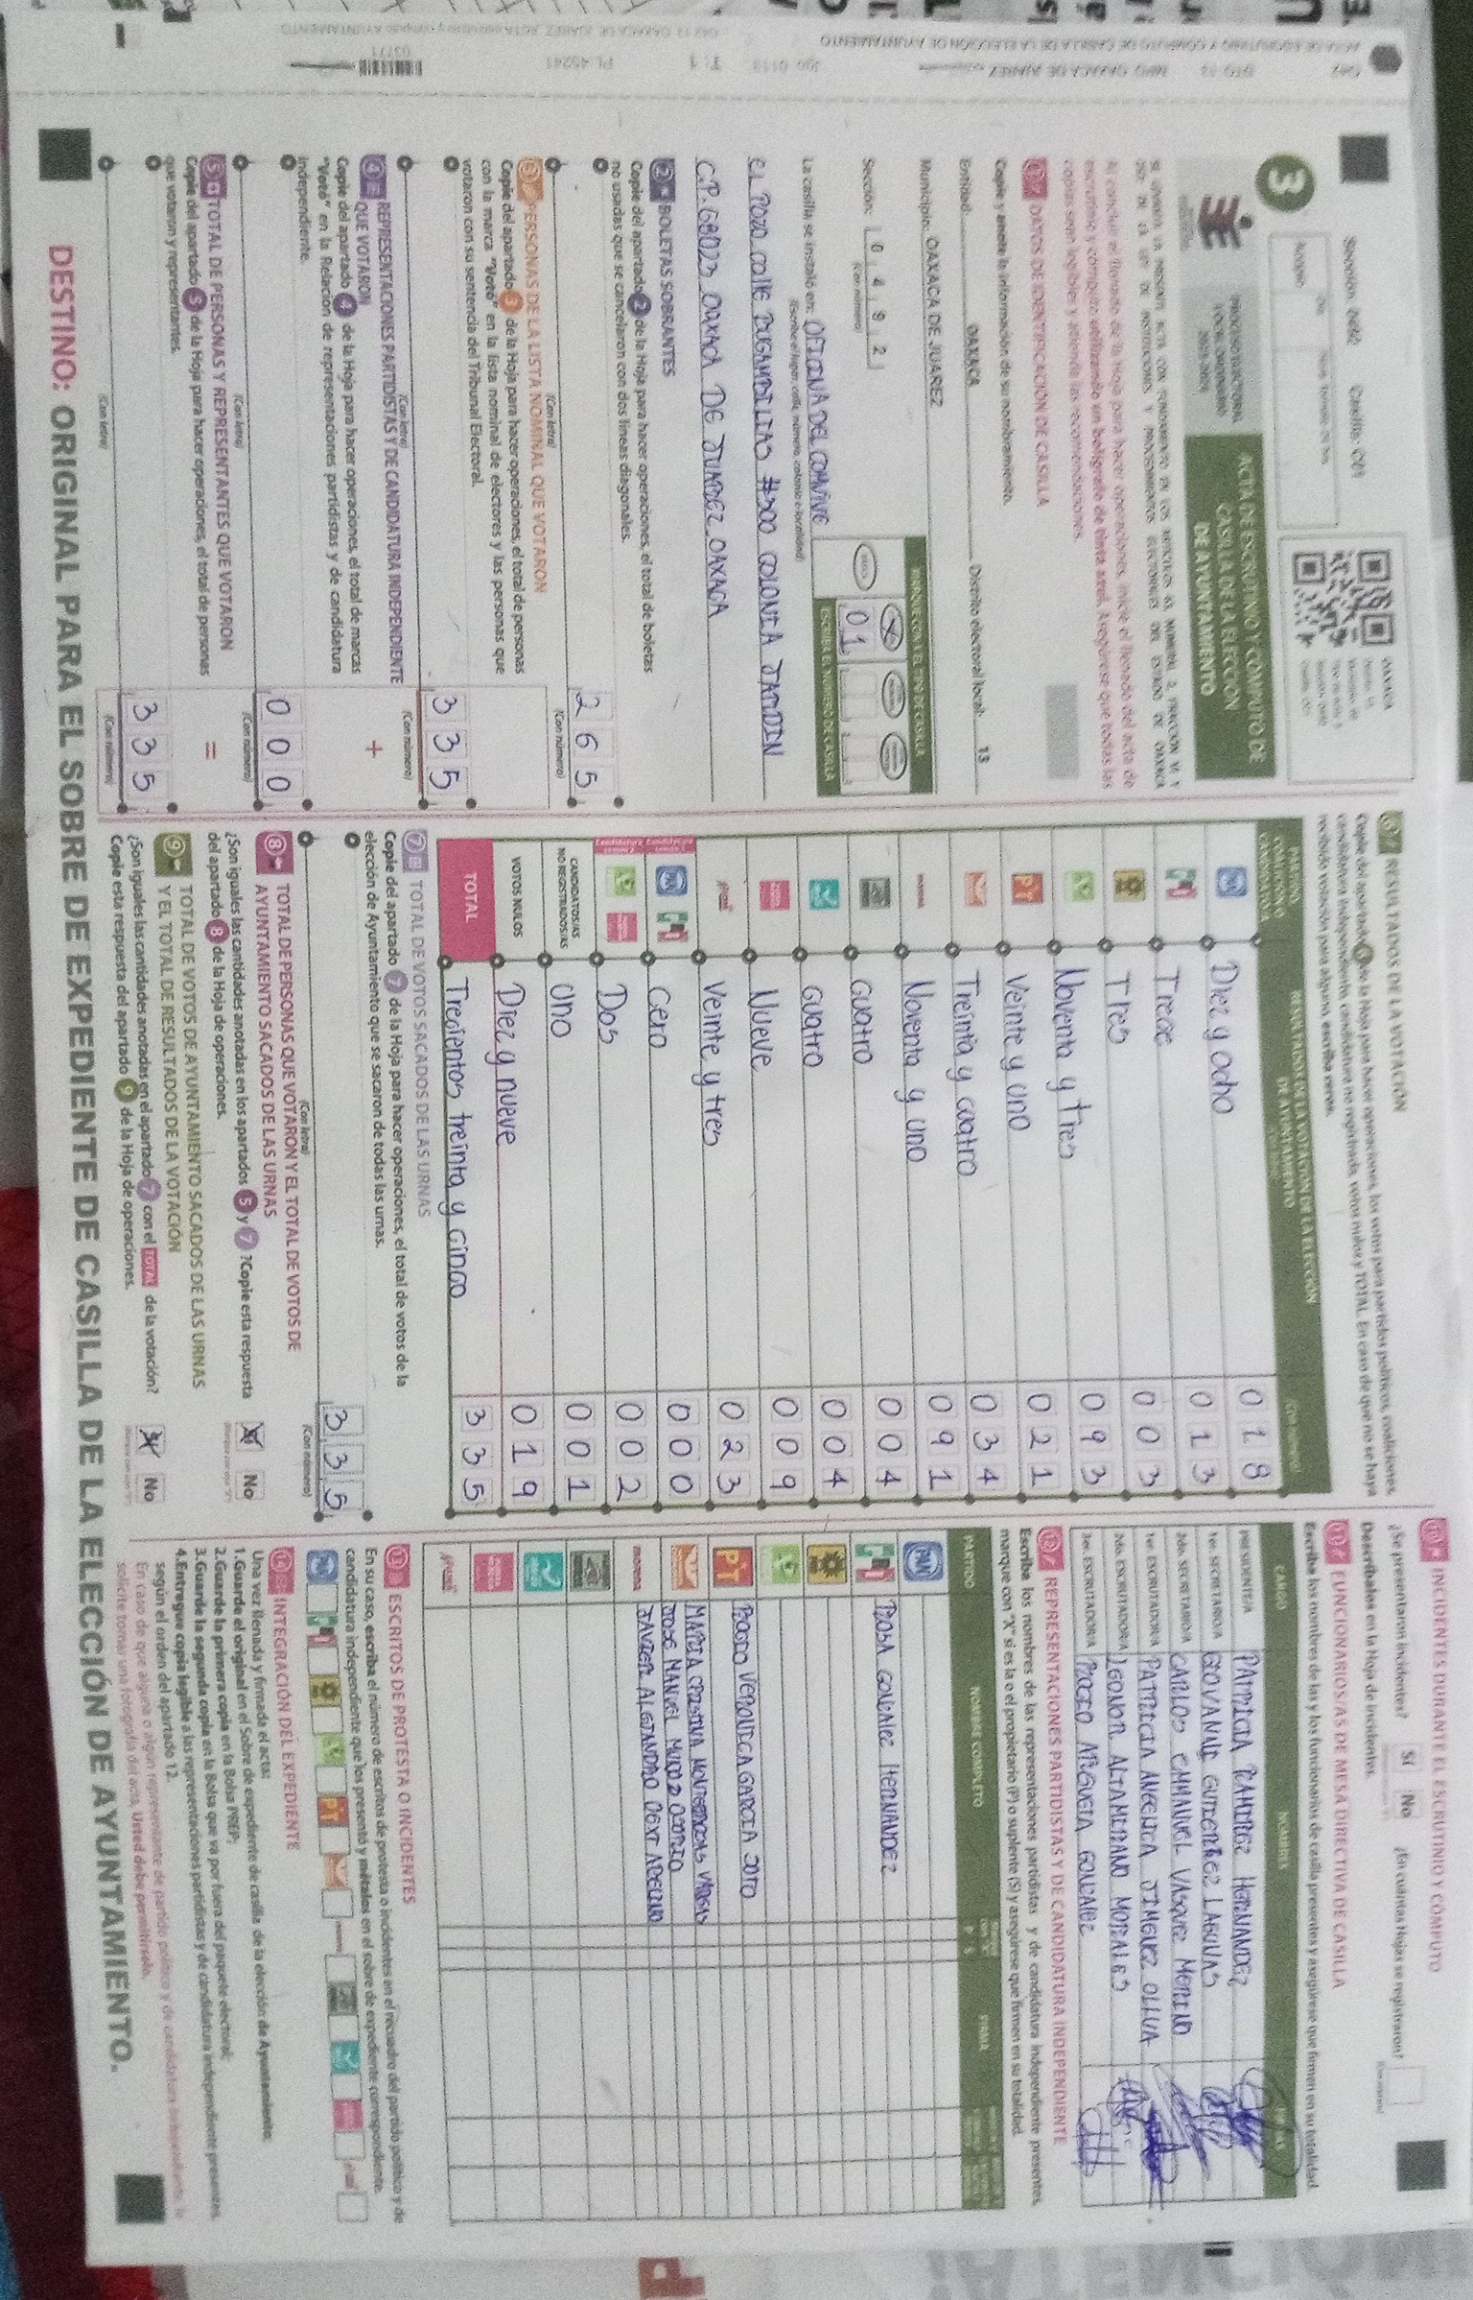 Sección: 0492 Casilla: C01
OAXACA
Acopio
3
PROCESO ELECTORAL
LOCAL ORDINARIO
2023-2024
ACTA DE ESCRUTINIO Y CÓMPUTO DE
CASILLA DE LA ELECCIÓN
DE AYUNTAMIENTO
Al concluir el llenado de la Hoja para hacer operaciones, inicie el llenado del acta de
escrutinio y cómputo utilizando un bolígrafo de tinta azul. Asegúrese que todas las
copias sean legibles y atienda las recomendaciones.
1 DATOS DE IDENTIFICACIÓN DE CASILLA
Copie y anote la información de su nombramiento.
Entidad: OAXACA Distrito electoral local: 13
Municipio: OAXACA DE JUAREZ
MARQUE CON X EL TIPO DE CASILLA
Sección: 0 4 9 2
(Con número)
ESCRIBA EL NÚMERO DE CASILLA
0 1
La casilla se instaló en: OFICINA DEL COMVIVE
(Escriba el lugar: calle, número, colonia o localidad)
EL POZO calle BUGAMBILIAS #500 COLONIA JARDIN
C.P. 68023 OAXACA DE JUAREZ OAXACA
2 BOLETAS SOBRANTES
Copie del apartado 2 de la Hoja para hacer operaciones, el total de boletas
no usadas que se cancelaron con dos líneas diagonales.
2 6 5
(Con letra) (Con número)
3 PERSONAS DE LA LISTA NOMINAL QUE VOTARON
Copie del apartado 3 de la Hoja para hacer operaciones, el total de personas
con la marca "Votó" en la lista nominal de electores y las personas que
votaron con su sentencia del Tribunal Electoral.
3 3 5
(Con letra) (Con número)
4 REPRESENTACIONES PARTIDISTAS Y DE CANDIDATURA INDEPENDIENTE
QUE VOTARON
+
Copie del apartado 4 de la Hoja para hacer operaciones, el total de marcas
"Votó" en la Relación de representaciones partidistas y de candidatura
independiente.
0 0 0
(Con letra) (Con número)
5 TOTAL DE PERSONAS Y REPRESENTANTES QUE VOTARON
=
Copie del apartado 5 de la Hoja para hacer operaciones, el total de personas
que votaron y representantes.
3 3 5
(Con letra) (Con número)
6 RESULTADOS DE LA VOTACIÓN
Copie del apartado 6 de la Hoja para hacer operaciones, los votos para partidos políticos, coaliciones,
candidatura independiente, candidatura no registrada, votos nulos y TOTAL. En caso de que no se haya
recibido votación para alguno, escriba ceros.
PARTIDO
COALICIÓN O
CANDIDATO/A
RESULTADOS DE LA VOTACIÓN DE LA ELECCIÓN
DE AYUNTAMIENTO
(Con número)
PAN Diez y ocho 0 1 8
PRI Trece 0 1 3
Tres 0 0 3
Noventa y tres 0 9 3
PT Veinte y uno 0 2 1
Treinta y cuatro 0 3 4
morena Noventa y uno 0 9 1
cuatro 0 0 4
cuatro 0 0 4
Nueve 0 0 9
Veinte y tres 0 2 3
PAN PRI Cero 0 0 0
Dos 0 0 2
CANDIDATOS/AS
NO REGISTRADOS/AS
uno 0 0 1
VOTOS NULOS Diez y nueve 0 1 9
TOTAL Trecientos treinta y cinco 3 3 5
7 TOTAL DE VOTOS SACADOS DE LAS URNAS
Copie del apartado 7 de la Hoja para hacer operaciones, el total de votos de la
elección de Ayuntamiento que se sacaron de todas las urnas.
3 3 5
(Con letra) (Con número)
8 TOTAL DE PERSONAS QUE VOTARON Y EL TOTAL DE VOTOS DE
AYUNTAMIENTO SACADOS DE LAS URNAS
¿Son iguales las cantidades anotadas en los apartados 5 y 7 ?Copie esta respuesta
del apartado 8 de la Hoja de operaciones.
Sí No
9 TOTAL DE VOTOS DE AYUNTAMIENTO SACADOS DE LAS URNAS
Y EL TOTAL DE RESULTADOS DE LA VOTACIÓN
¿Son iguales las cantidades anotadas en el apartado 7 con el TOTAL de la votación?
Copie esta respuesta del apartado 9 de la Hoja de operaciones.
Sí No
10 INCIDENTES DURANTE EL ESCRUTINIO Y CÓMPUTO
¿Se presentaron incidentes? Sí No ¿En cuántas Hojas se registraron?
Descríbalos en la Hoja de incidentes.
11 FUNCIONARIOS/AS DE MESA DIRECTIVA DE CASILLA
Escriba los nombres de las y los funcionarios de casilla presentes y asegúrese que firmen en su totalidad.
CARGO NOMBRES FIRMAS
PRESIDENTE/A PATRICIA RAMIREZ HERNANDEZ
1er. SECRETARIO/A GIOVANNI GUTIERREZ LAGUNAS
2do. SECRETARIO/A CARLOS EMMANUEL VASQUEZ MORENO
1er. ESCRUTADOR/A PATRICIA ANGELICA JIMENEZ OLIVA
2do. ESCRUTADOR/A LEONOR ALTAMIRANO MORALES
3er. ESCRUTADOR/A ROCIO ARGUETA GONZALEZ
12 REPRESENTACIONES PARTIDISTAS Y DE CANDIDATURA INDEPENDIENTE
Escriba los nombres de las representaciones partidistas y de candidatura independiente presentes,
marque con "X" si es la o el propietario (P) o suplente (S) y asegúrese que firmen en su totalidad.
PARTIDO NOMBRE COMPLETO P S FIRMA
PAN
PRI ROSA GONZALEZ HERNANDEZ
PT ROCIO VERONICA GARCIA SOTO
MARIA CRISTINA MONTERROSAS VARGAS
JOSE MANUEL MUÑOZ OSORIO
morena JAVIER ALEJANDRO
13 ESCRITOS DE PROTESTA O INCIDENTES
En su caso, escriba el número de escritos de protesta o incidentes en el recuadro del partido político y de
candidatura independiente que los presentó y métalos en el sobre de expediente correspondiente.
14 INTEGRACIÓN DEL EXPEDIENTE
Una vez llenada y firmada el acta:
1.Guarde el original en el Sobre de expediente de casilla de la elección de Ayuntamiento.
2.Guarde la primera copia en la Bolsa PREP;
3.Guarde la segunda copia en la Bolsa que va por fuera del paquete electoral;
4.Entregue copia legible a las representaciones partidistas y de candidatura independiente presentes,
según el orden del apartado 12.
En caso de que alguna o algún representante de partido político y de candidatura independiente, le
solicite tomar una fotografía del acta, Usted debe permitírselo.
DESTINO: ORIGINAL PARA EL SOBRE DE EXPEDIENTE DE CASILLA DE LA ELECCIÓN DE AYUNTAMIENTO.